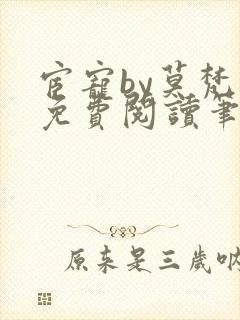 宦寵by莫梵
免費閱讀筆
原来是三歲呐